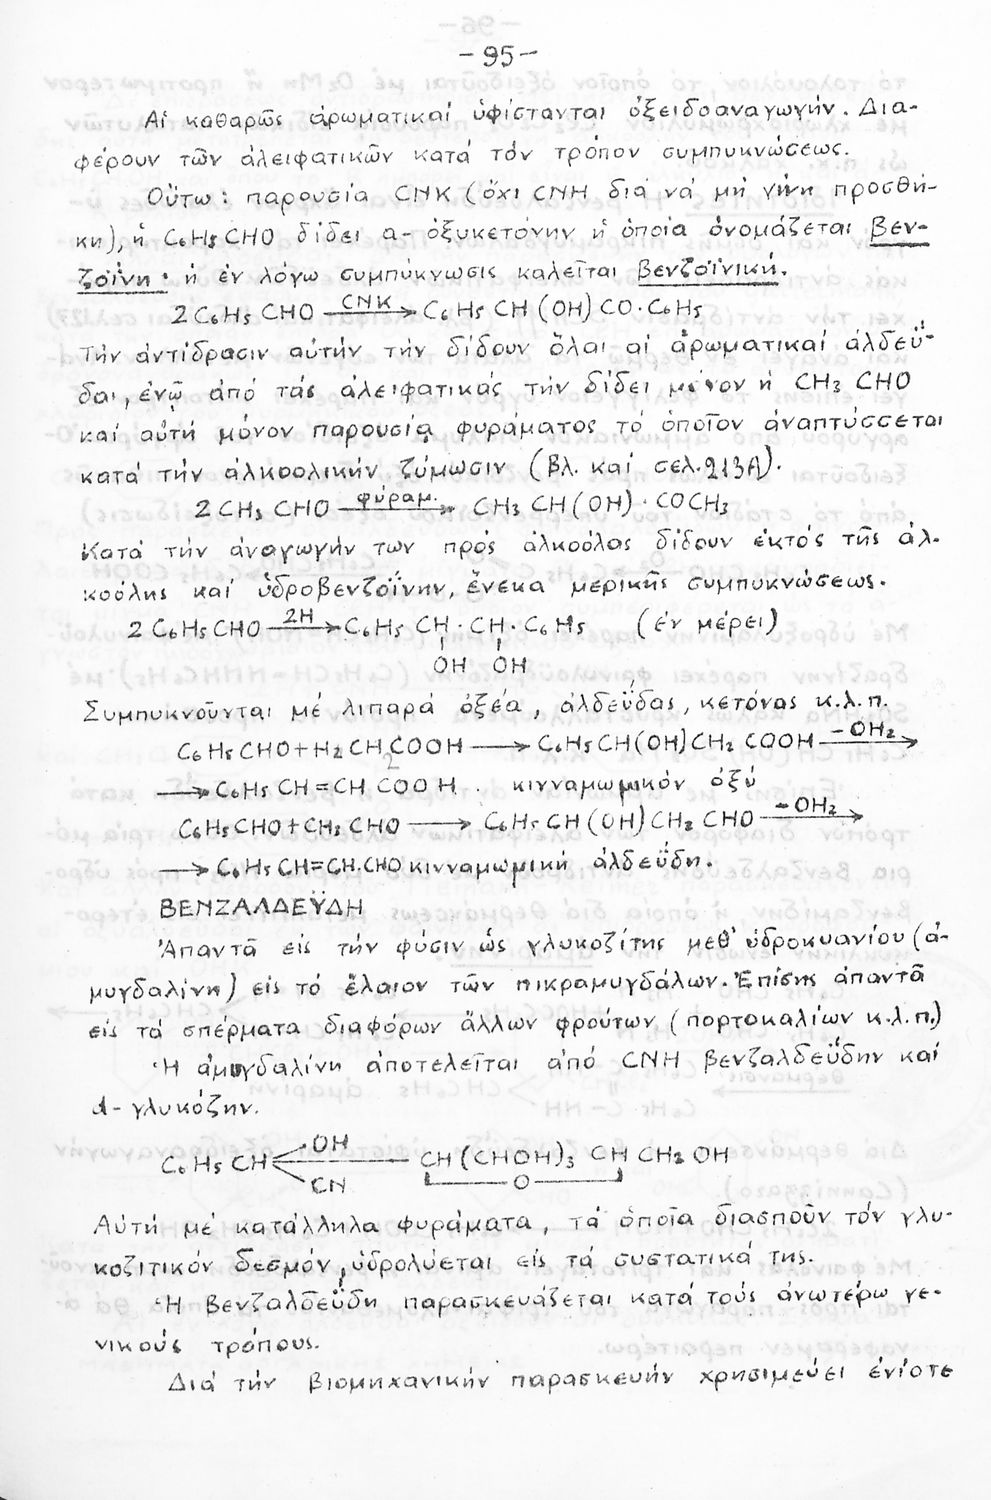 -95-
Αἱ καθαρῶς ἀρωματικαί ὑφίστανται ὀξειδοαναγωγήν. Δια-
φέρουν τῶν ἀλειφατικῶν κατά τόν τρόπον συμπυκνώσεως.
Οὕτω: παρουσίᾳ CNK (ὄχι CNH διά νά μή γίνη προσθή-
κη), ἡ C6H5CHO δίδει α- ὀξυκετόνην ἡ ὁποία ὀνομάζεται βεν-
ζοΐνη· ἡ ἐν λόγω συμπύκνωσις καλεῖται βενζοϊνική.
2C6H5 CHO —CNK→ C6H5 CH (OH) CO·C6H5
Τήν ἀντίδρασιν αὐτήν τήν δίδουν ὅλαι αἱ ἀρωματικαί ἀλδεΰ-
δαι, ἐνῷ ἀπό τάς ἀλειφατικάς τήν δίδει μόνον ἡ CH3 CHO
καί αὐτή μόνον παρουσίᾳ φυράματος τό ὁποῖον ἀναπτύσσεται
κατά τήν ἀλκοολικήν ζύμωσιν (βλ. καί σελ. 213Α).
2CH3 CHO —φύραμ.→ CH3 CH (OH) · COCH3
Κατά τήν ἀναγωγήν των πρός ἀλκοόλας δίδουν ἐκτός τῆς ἀλ-
κοόλης καί ὑδροβενζοΐνην, ἕνεκα μερικῆς συμπυκνώσεως.
2 C6H5 CHO —2H→ C6H5 CH · CH · C6H5 (ἐν μέρει)
OH OH
Συμπυκνοῦνται μέ λιπαρά ὀξέα, ἀλδεΰδας, κετόνας κ.λ.π.
C6H5 CHO + H2 CH2COOH → C6H5 CH(OH)CH2 COOH —-OH2→
→ C6H5 CH = CH COOH. κινναμωμικόν ὀξύ
C6H5 CHO + CH3 CHO → C6H5 CH (OH) CH2 CHO —-OH2→
→ C6H5 CH=CH.CHO κινναμωμική ἀλδεΰδη.
ΒΕΝΖΑΛΔΕΫΔΗ
Ἀπαντᾶ εἰς τήν φύσιν ὡς γλυκοζίτης μεθ' ὑδροκυανίου (ἀ-
μυγδαλίνη) εἰς τό ἔλαιον τῶν πικραμυγδάλων. Ἐπίσης ἀπαντᾶ
εἰς τά σπέρματα διαφόρων ἄλλων φρούτων (πορτοκαλίων κ.λ.π.)
Ἡ ἀμυγδαλίνη ἀποτελεῖται ἀπό CNH βενζαλδεΰδην καί
d- γλυκόζην.
C6H5 CH OH CH (CHOH)3 CH CH2 OH
CN O
Αὐτή μέ κατάλληλα φυράματα, τά ὁποῖα διασποῦν τόν γλυ-
κοζιτικόν δεσμόν, ὑδρολύεται εἰς τά συστατικά της.
Ἡ βενζαλδεΰδη παρασκευάζεται κατά τούς ἀνωτέρω γε-
νικούς τρόπους.
Διά τήν βιομηχανικήν παρασκευήν χρησιμεύει ἐνίοτε